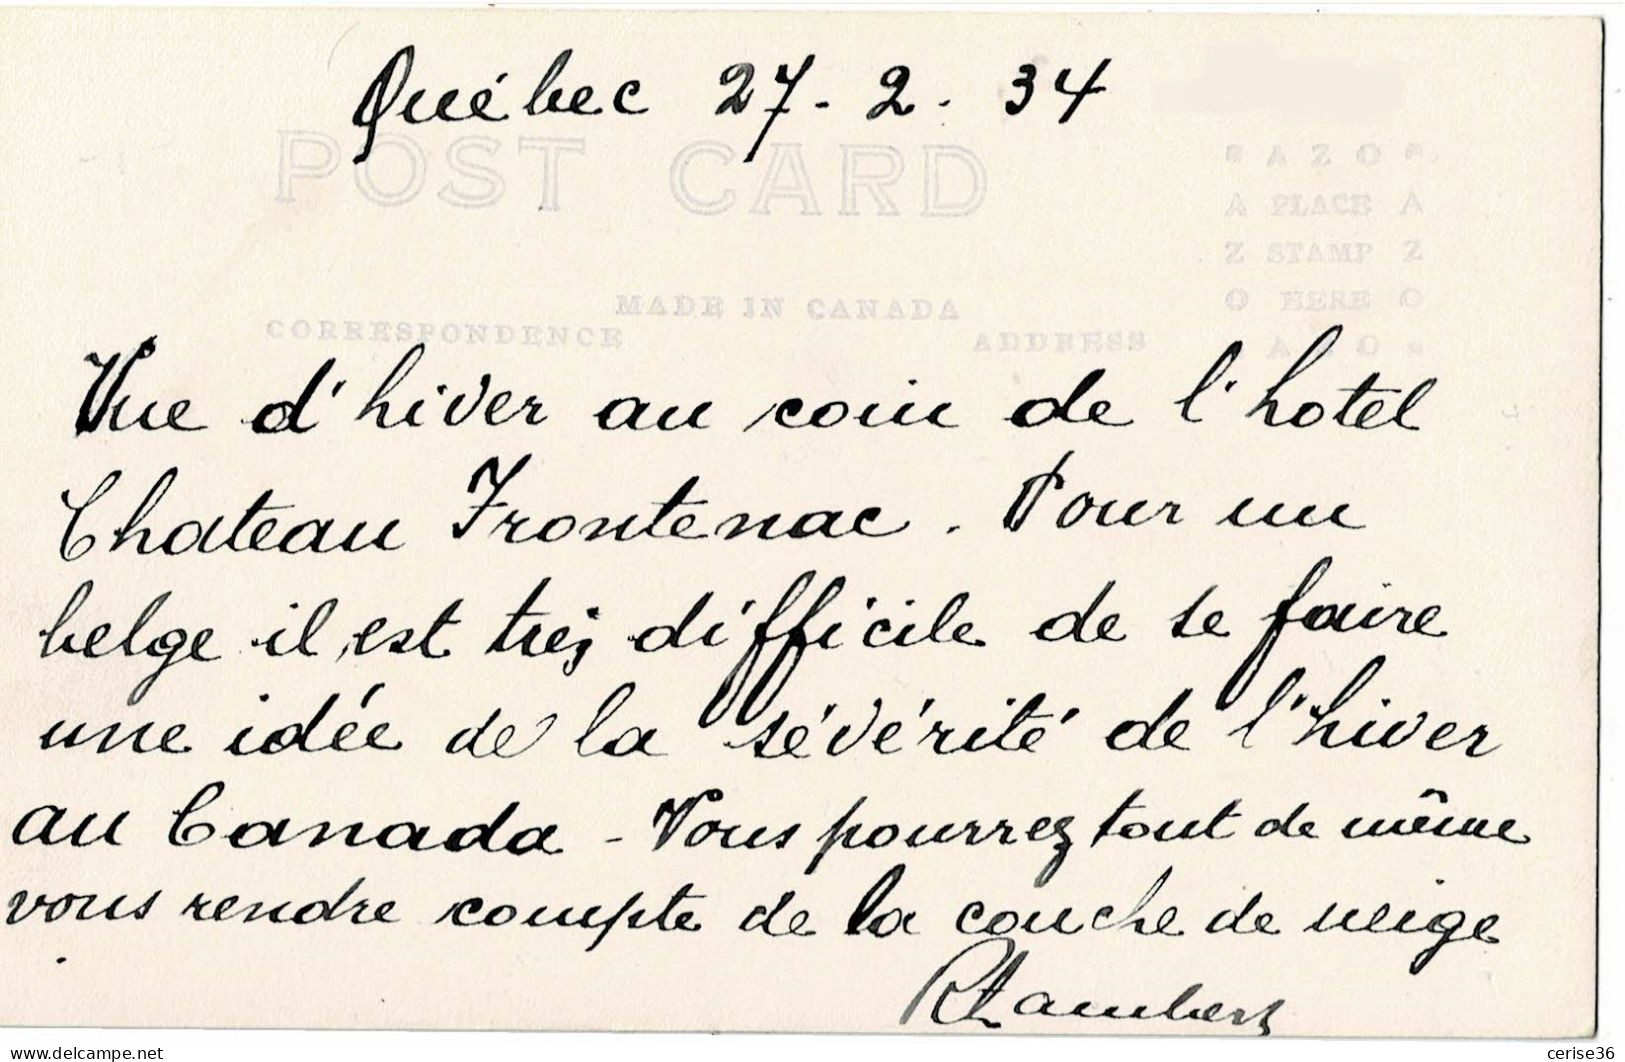 Québec 27-2.34
POST CARD
RAZO
A PLACE A
Z STAMP Z
O HERE O
MADE IN CANADA
CORRESPONDENCE ADDRESS
Vue d'hiver au coin de l'hotel
Chateau Frontenac. Pour un
belge il est très difficile de se faire
une idée de la sévérité de l'hiver
au Canada - Vous pourrez tout de même
vous rendre compte de la couche de neige
Lambert
delcampe.net
cerise36